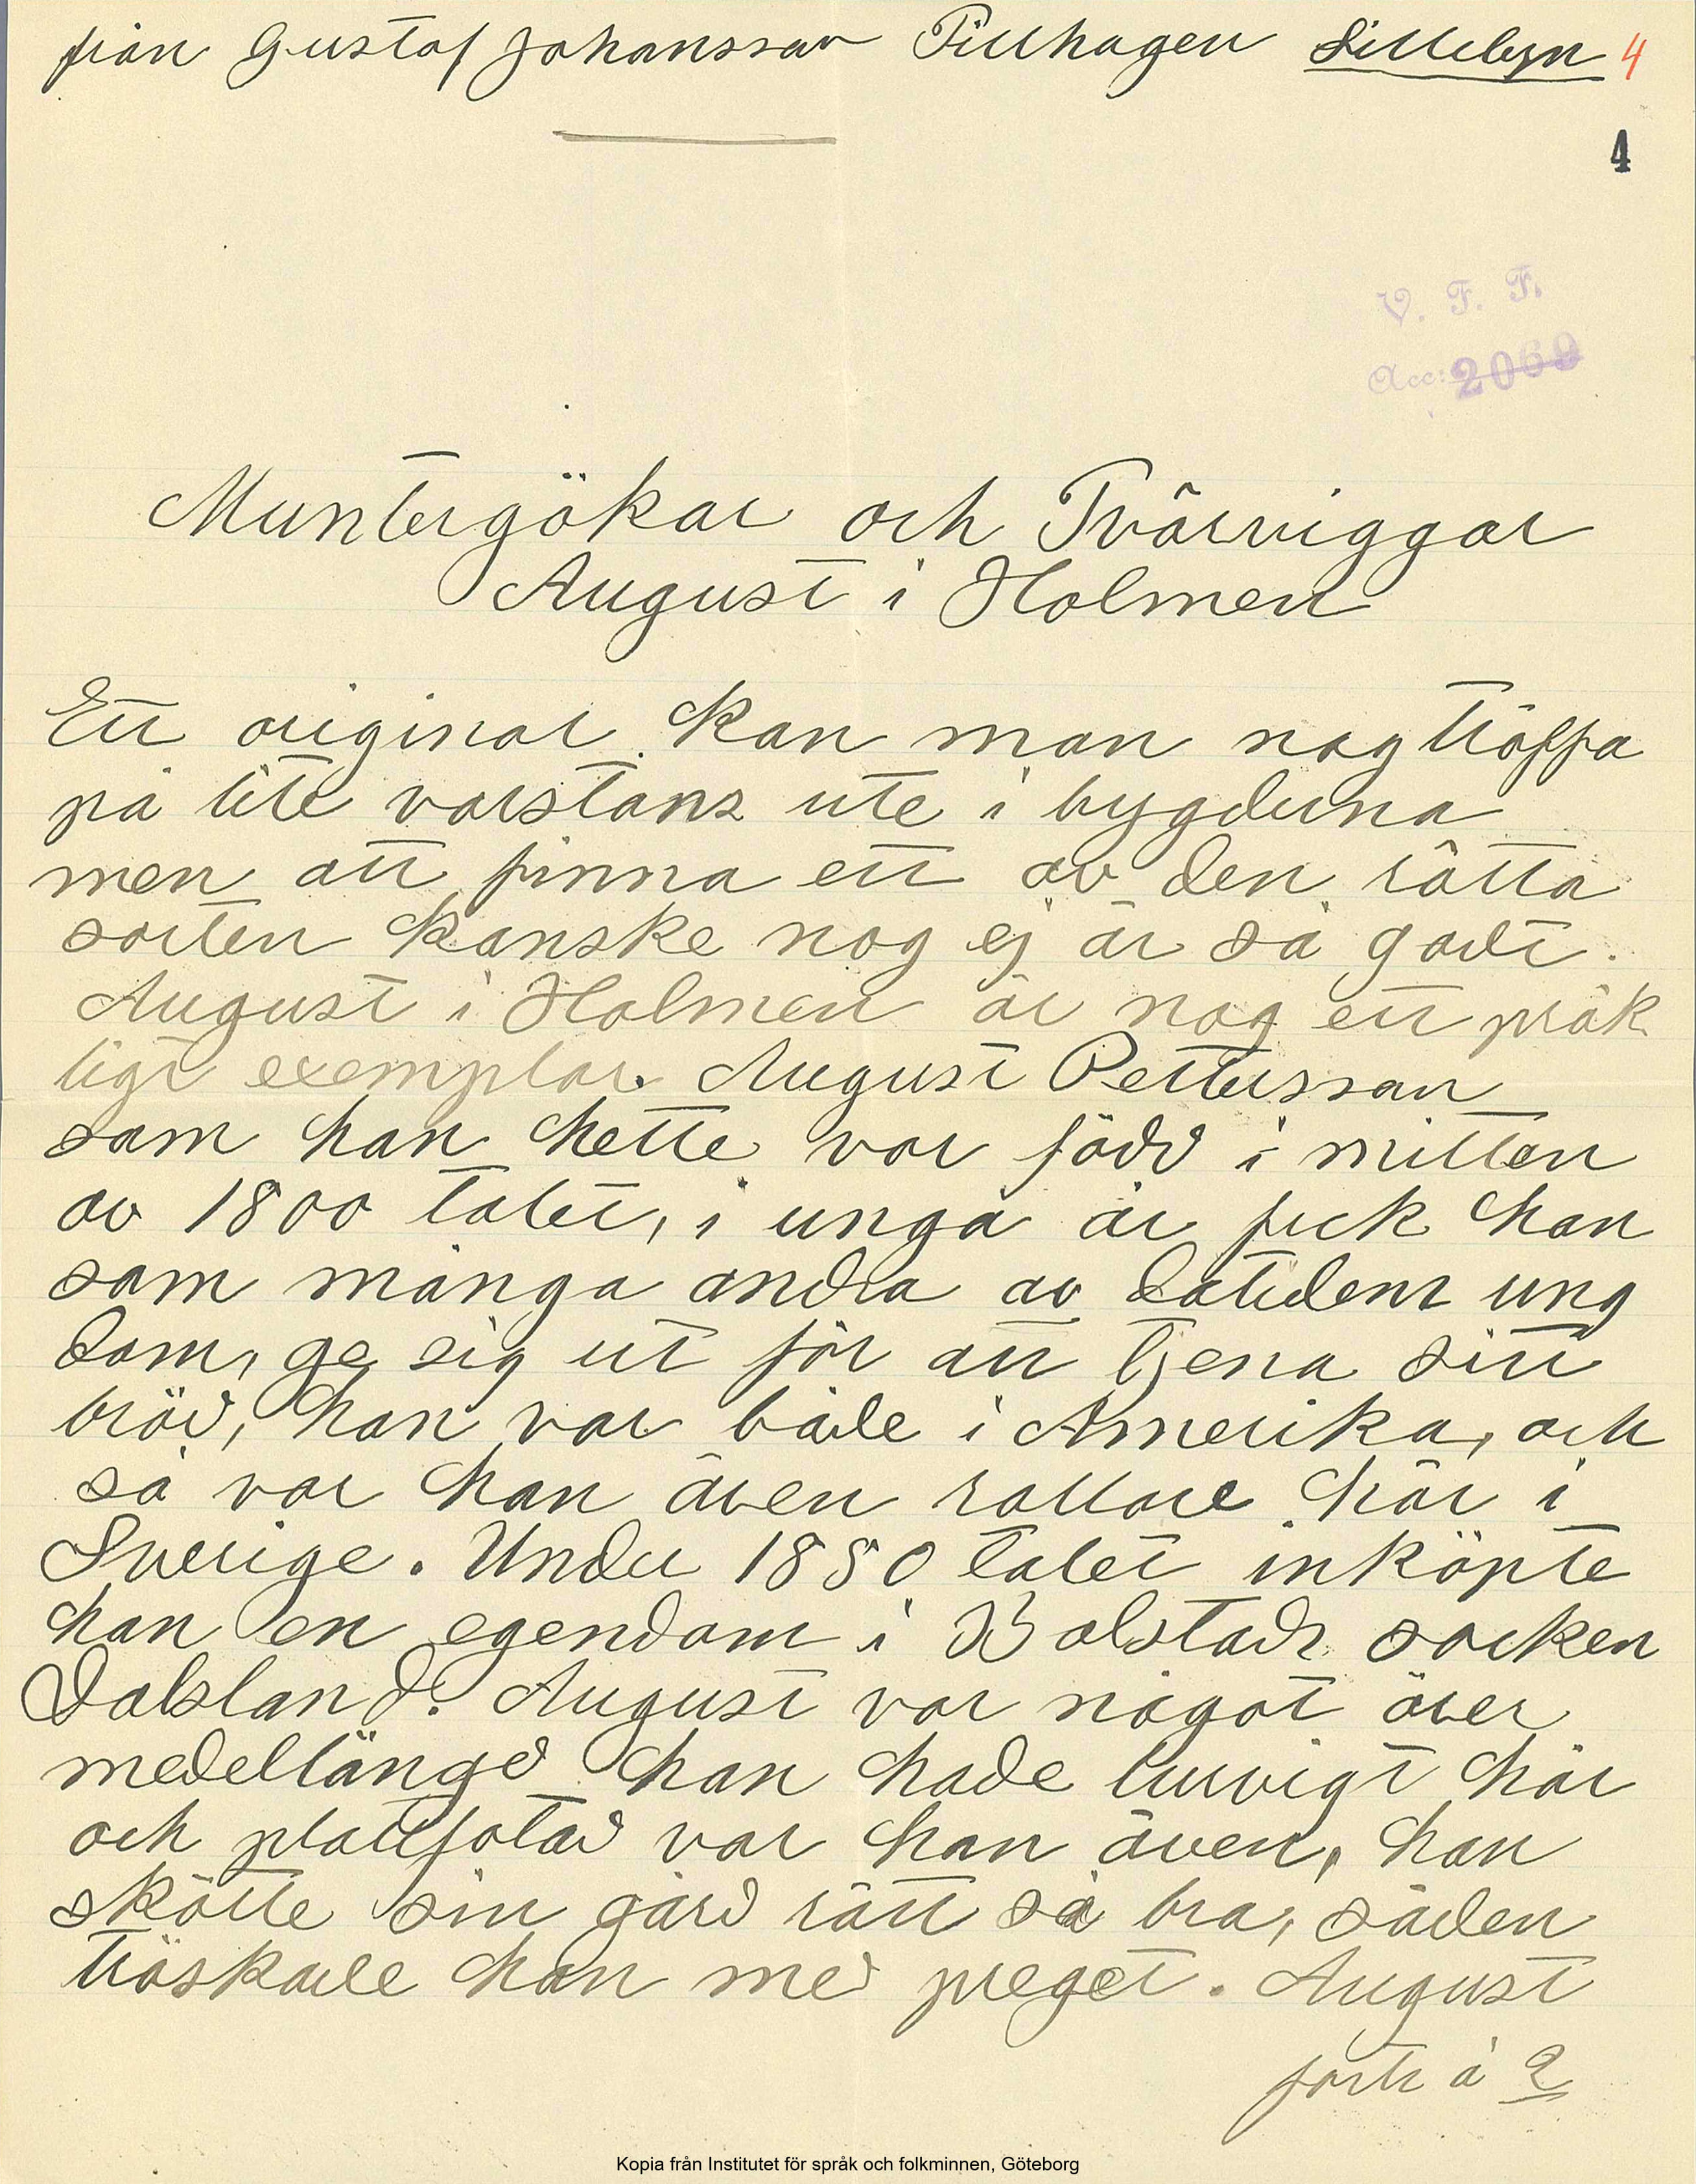 från Gustaf Johansson Pillhagen Sillebyn 4
4
V. F. F.
Acc: 2069
Muntergökar och Tvärviggar
August i Holmen
Ett originar kan man nog träffa
på lite varstans ute i bygderna
men att finna ett av den rätta
sorten kanske nog ej är så godt.
August i Holmen är nog ett präk
tigt exemplar. August Pettersson
som han hette var född i mitten
av 1800 talet, i unga år fick han
som många andra av datidens ung
dom, ge sig ut för att tjena sitt
bröd, han var både i Amerika, och
så var han även rallare här i
Sverige. Under 1880 talet inköpte
han en egendom i Bolstads socken
Dalsland. August var något över
medellängd han hade lurvigt hår
och plattfotad var han även, han
skötte sin gård rätt så bra, säden
tröskade han med preget. August
forts å 2
Kopia från Institutet för språk och folkminnen, Göteborg